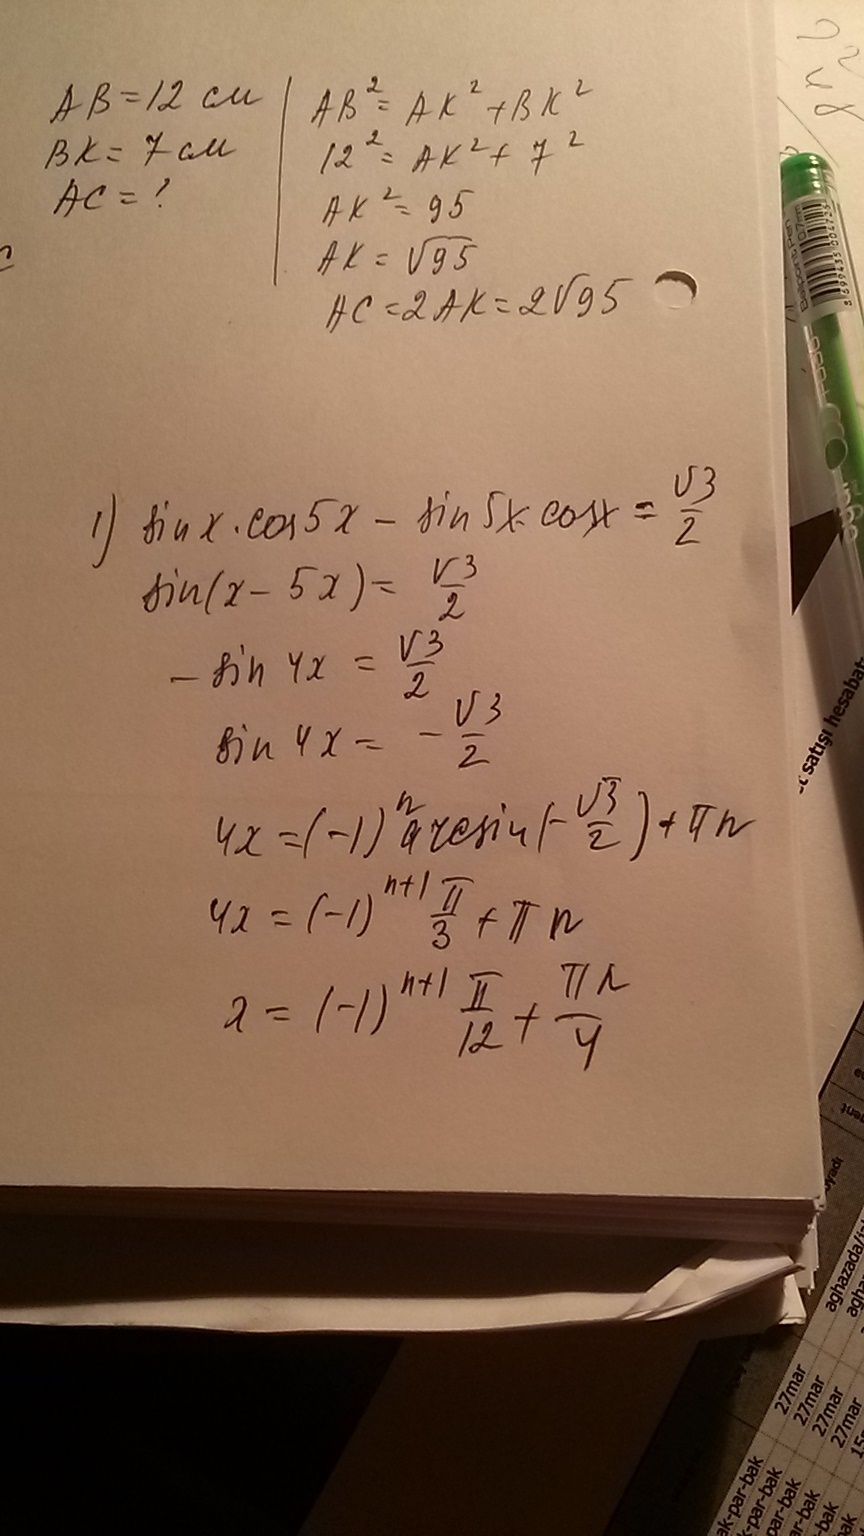 AB = 12 см
BK = 7 см
AC = ?
AB² = AK² + BK²
12² = AK² + 7²
AK² = 95
AK = √95
AC = 2AK = 2√95
1) sinx·cos5x − sin5x·cosx = √3/2
sin(x − 5x) = √3/2
− sin 4x = √3/2
sin 4x = − √3/2
4x = (−1)ⁿ arcsin(−√3/2) + πn
4x = (−1)ⁿ⁺¹ π/3 + πn
x = (−1)ⁿ⁺¹ π/12 + πn/4
Ballpoint Pen
0.7mm
satışı hesabat
aghazada/i
27mar
27mar
27mar
27mar
ak-par-bak
k-par-bak
par-bak
bak